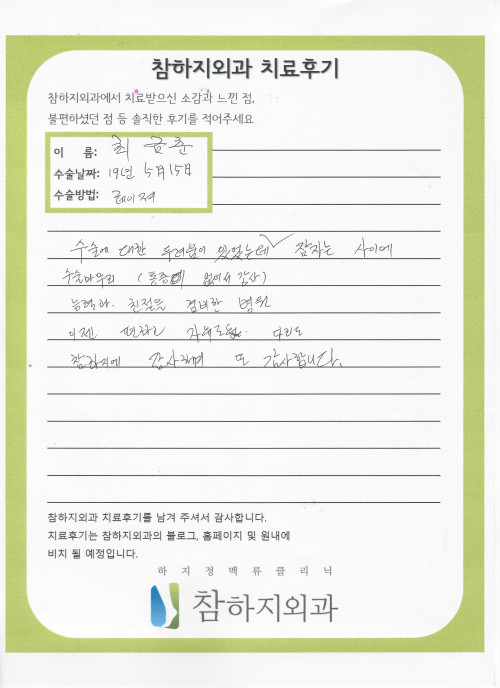 참하지외과 치료후기
참하지외과에서 치료받으신 소감과 느낀 점,
불편하셨던 점 등 솔직한 후기를 적어주세요
이 름: 최금춘
수술날짜: 19년 5月15日
수술방법: 레이저
수술에 대한 두려움이 있었는데 잠자는 사이에
수술마무리 (통증이 없어서 감사)
능력과 친절을 겸비한 병원
이젠 편하고 자유로운 다리로
참하지에 감사하며 또 감사합니다.
참하지외과 치료후기를 남겨 주셔서 감사합니다.
치료후기는 참하지외과의 블로그, 홈페이지 및 원내에
비치 될 예정입니다.
하지정맥류클리닉
참하지외과